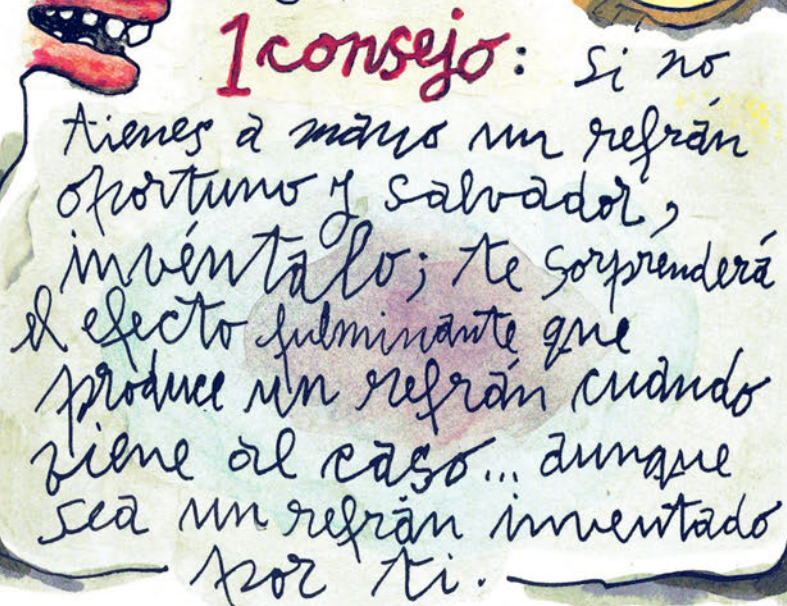 1 consejo: Si no
tienes a mano un refrán
oportuno y salvador,
invéntalo; te sorprenderá
el efecto fulminante que
produce un refrán cuando
viene al caso... aunque
sea un refrán inventado
por ti.